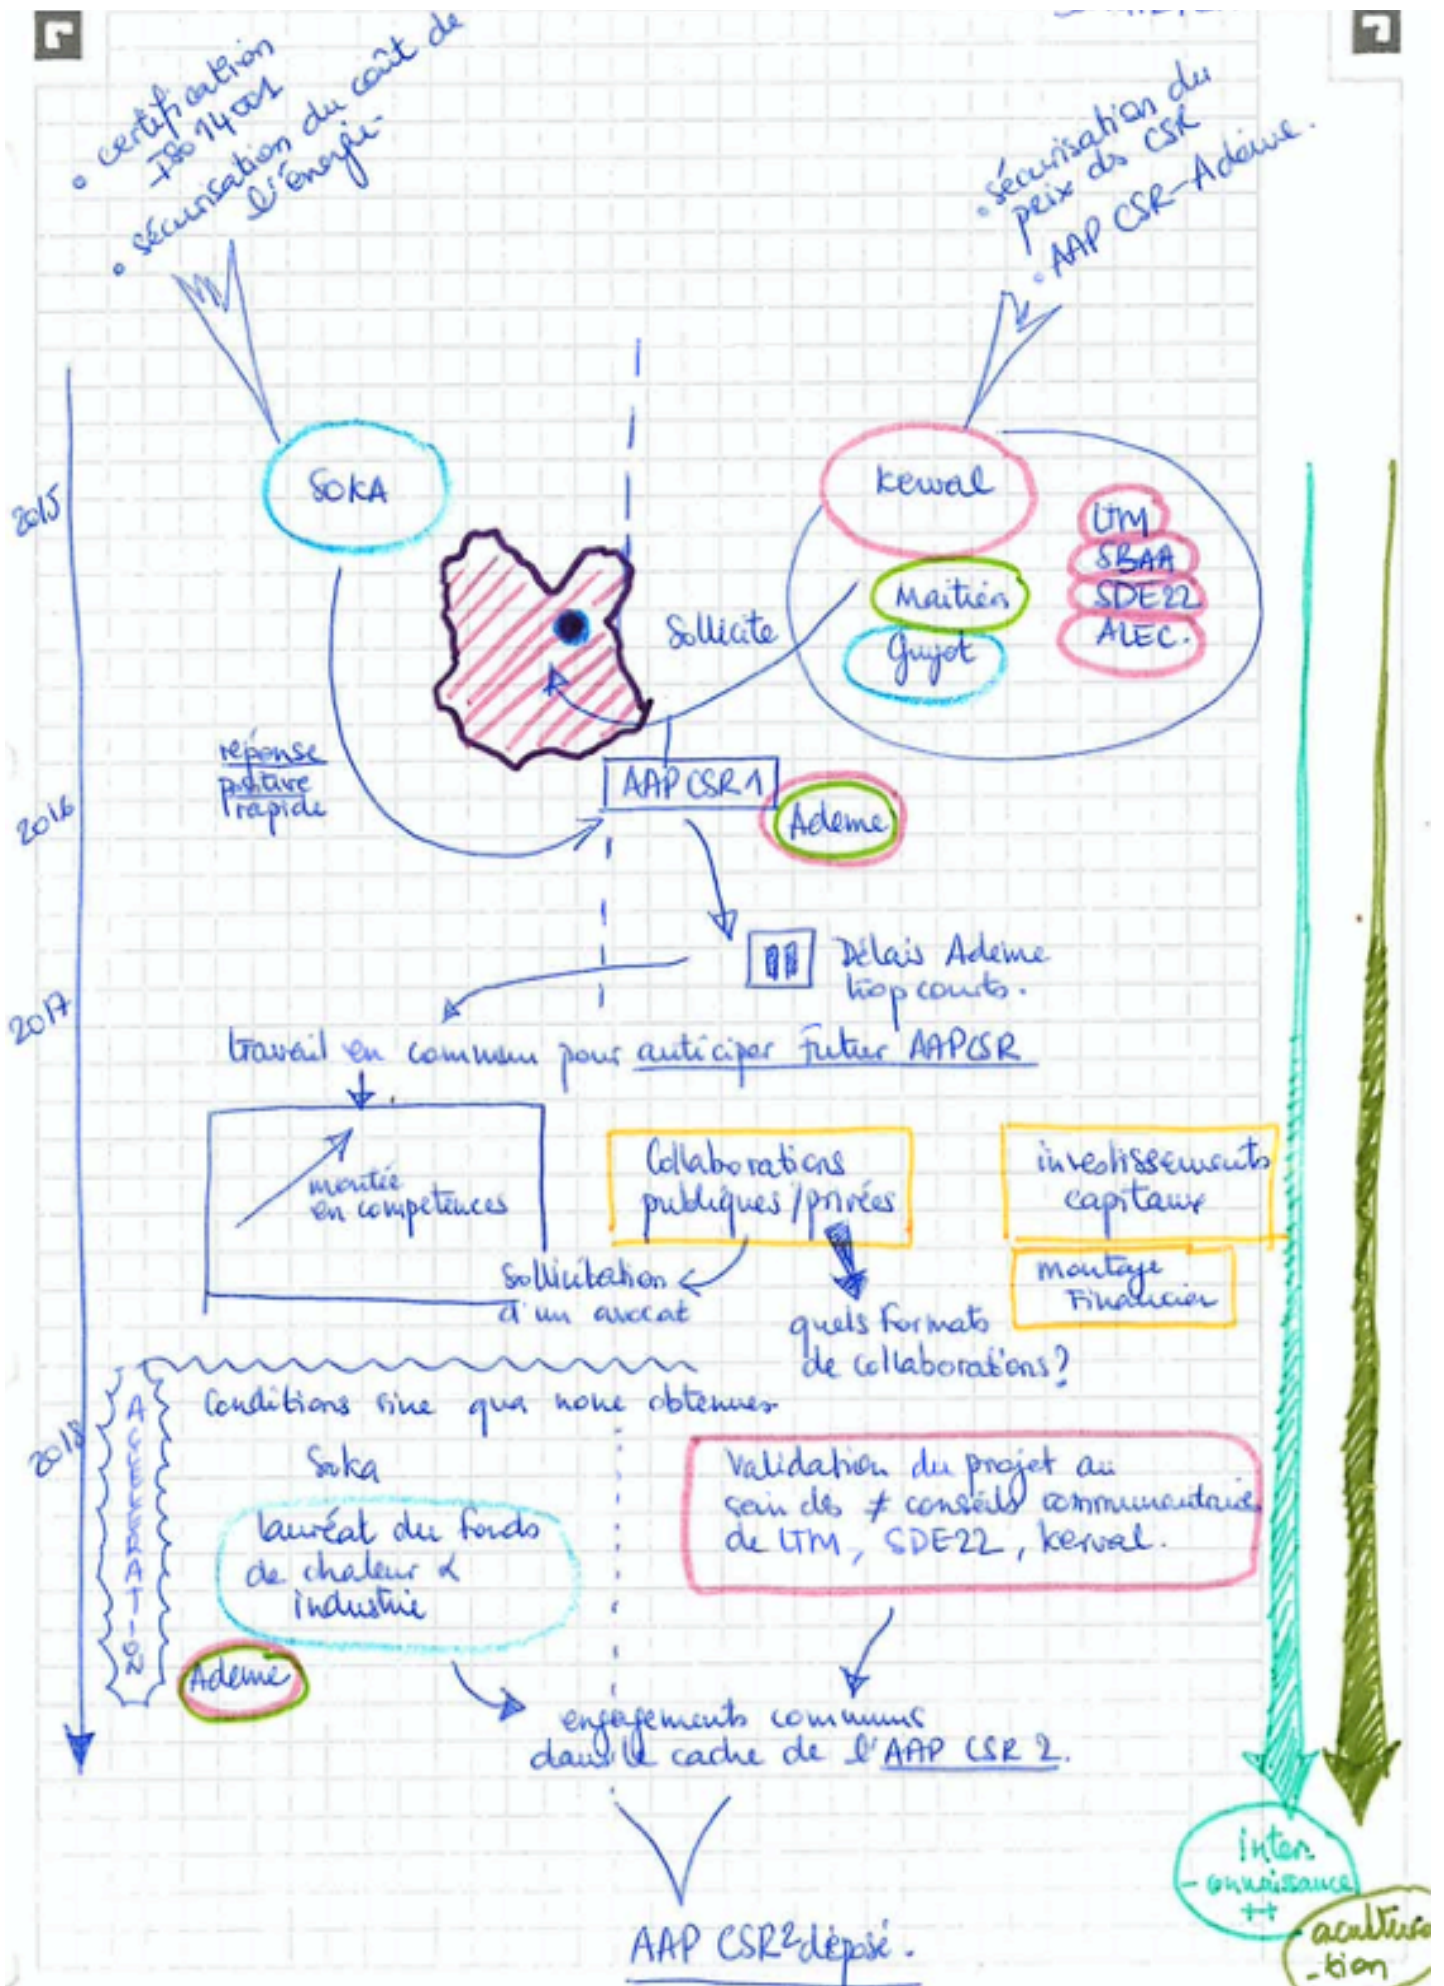 • certification
ISO 14001
• sécurisation du coût de
l'énergie
• sécurisation du
prix ds CSR
• AAP CSR-Ademe.
2015
SOKA
Kerval
LTM
SBAA
SDE22
ALEC.
Guyot
Sollicite
réponse
positive
rapide
AAP CSR 1
Ademe
2016
Délais Ademe
trop courts.
2017
travail en commun pour anticiper Futur AAPCSR
montée
en compétences
Collaborations
publiques / privées
investissements
capitaux
montage
Financier
Sollicitation
d'un avocat
quels Formats
de collaborations?
ACCELERATION
Conditions sine qua none obtenues
2018
Soka
lauréat du fonds
de chaleur
industrie
Validation du projet au
sein des ≠ conseils communautaires
de LTM, SDE22, Kerval.
Ademe
engagements communs
dans le cadre de l'AAP CSR 2.
inter
-connaissance
++
AAP CSR2 déposé.
-tion